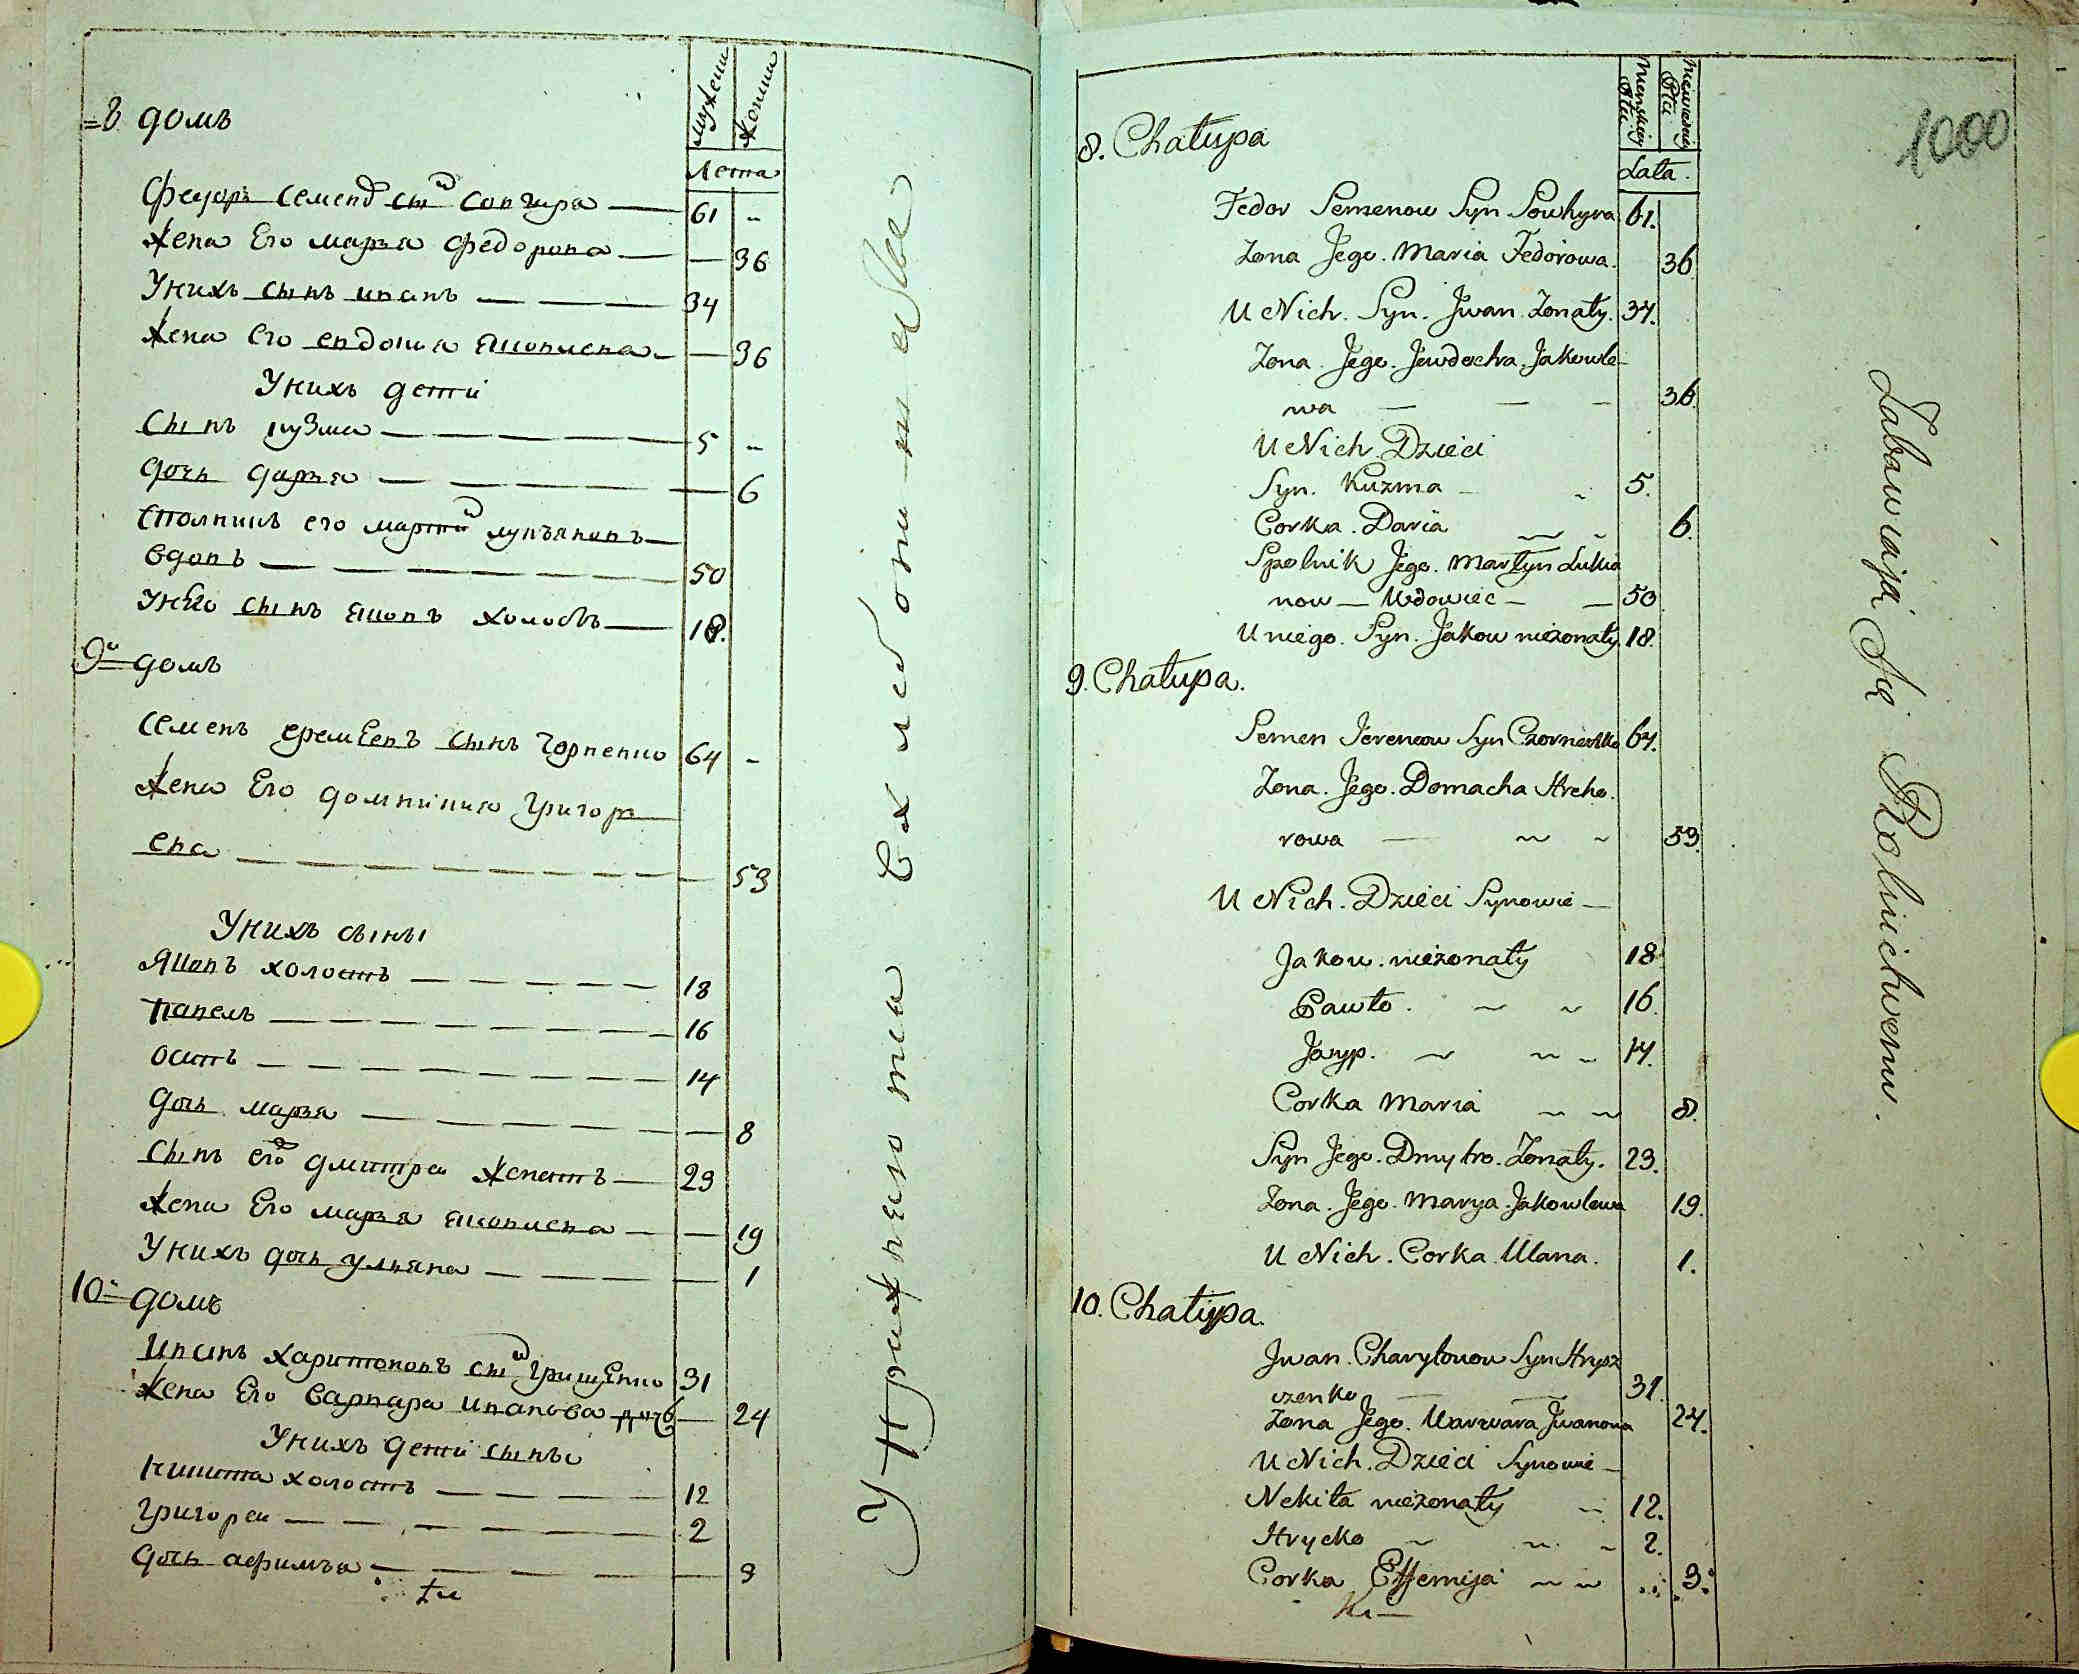 =8 домъ
мужеии
жении
Лета
Федоръ семенов сын совгира — 61 -
жена Его марья федорова — — 36
Унихъ сынъ иванъ — — — 34
жена его евдокия яковлева — — 36
Унихъ дети
Сынъ кузма — — — — — 5 -
дочь дарья — — — — — 6
сполникъ его мартин лукъяновъ —
вдовъ — — — — — — 50
Унѣго сынъ яковъ холостъ — 18.
9= домъ
Семенъ еремѣевъ сынъ чорненко 64 -
жена Его домникия григорь
ева — — — — — — — — 53
Унихъ сыны
Яковъ холостъ — — — — — 18
павелъ — — — — — — — 16
осипъ — — — — — — — 14
дочь марья — — — — — — 8
сынъ его дмитреи женатъ — 23
жена Его марья яковлева — — 19
Унихъ дочь ульяна — — — — 1
10= домъ
иванъ харитоновъ сын грищенко 31
жена Его варвара иванова дочь — 24
Унихъ дети сыны
никита холостъ — — — — 12
григореи — — — — — — 2
дочь афимья — — — — — 3
Упражнѣютса вхлебопашествѣ
1000
Męskiey Płci
Niewieściey Płci
Lata.
8. Chałupa
Fedor Semenow Syn Sowhyra 61.
Zona Jego. Maria Fedorowa. 36
U Nich. Syn. Jwan Zonaty. 34.
Zona. Jego. Jewdocha. Jakowle-
wa — — — 36.
U Nich. Dzieci
Syn. Kuzma - 5.
Corka. Daria 6.
Spolnik Jego. Martyn Lukia
now — Wdowiec — — 50
U niego. Syn. Jakow nieżonaty. 18.
9. Chałupa.
Semen Jeremeow Syn Czornenko 64.
Zona. Jego. Domacha Hreho.
rowa — 53.
U Nich. Dzieci Synowie —
Jakow. nieżonaty 18
Pawło. 16.
Jozyp. 14.
Corka Maria 8.
Syn Jego. Dmytro. Zonaty. 23.
Zona. Jego. Marya. Jakowlewa 19.
U Nich. Corka. Ulana. 1.
10. Chałupa.
Jwan. Charytonow Syn Hrysz
czenko — — 31.
Zona Jego. Warwara Jwanowa 24.
U Nich. Dzieci Synowie —
Nekita nieżonaty 12.
Hrycko 2.
Corka Effemija 3.
Zabawiają Się Rolnictwem.